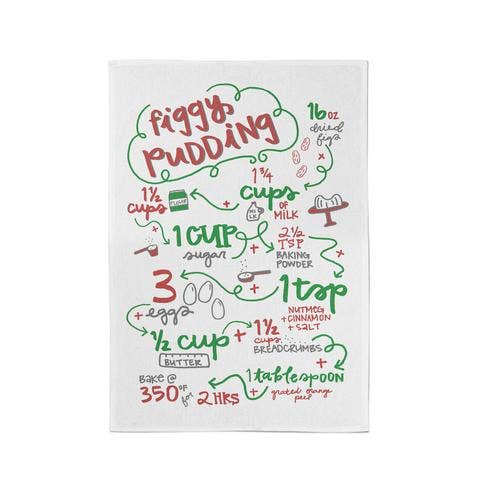 figgy
PUDDING
16 oz
dried
figs
x
1 3/4
cups
OF
MILK
MILK
+
1 1/2
cups
FLOUR
+
1 CUP
sugar
+
2 1/2
TSP
BAKING
POWDER
x
1 tsp
NUTMEG
+ CINNAMON
+ SALT
+
3
eggs
+
1/2 cup
BUTTER
+
1 1/2
cups
BREADCRUMBS
+
1 tablespoon
grated orange
peel
+
BAKE @
350°F
for
2 HRS